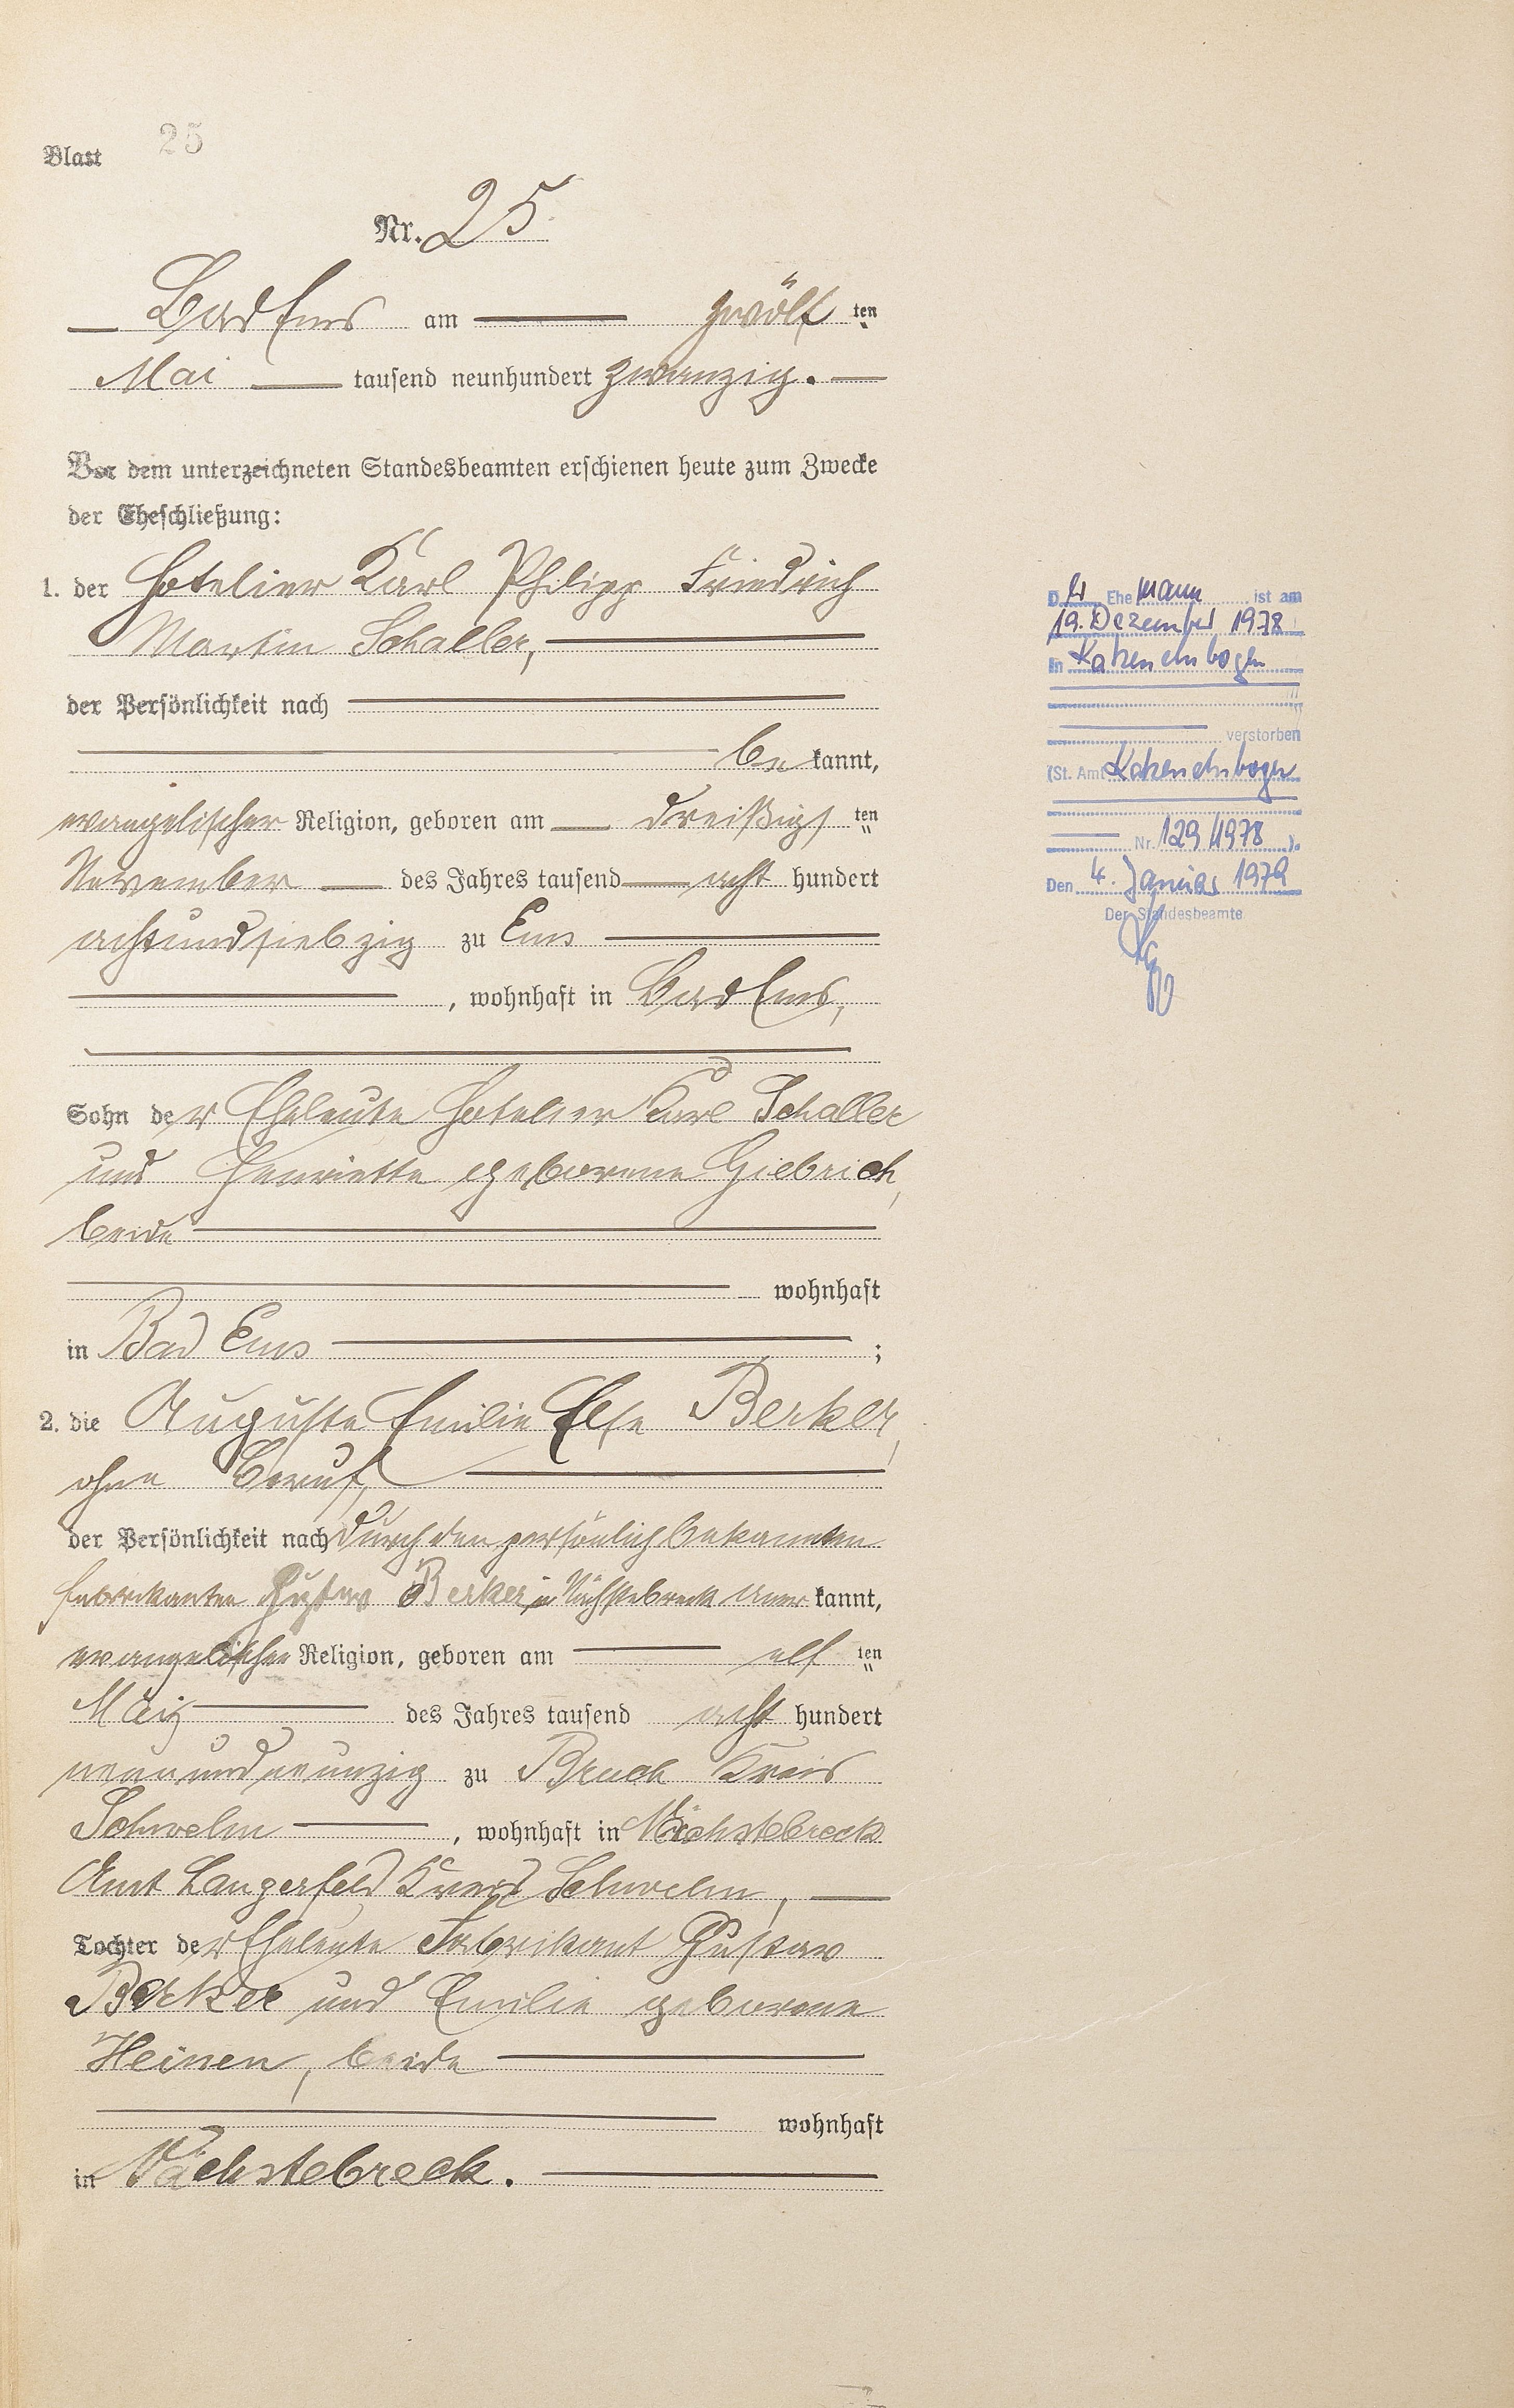 Blatt 25
Nr. 25
Bad Ems am zwölf ten
Mai tausend neunhundert zwanzig.
Vor dem unterzeichneten Standesbeamten erschienen heute zum Zwecke
der Eheschließung:
1. der Hotelier Karl Philipp Friedrich
Martin Schaller,
der Persönlichkeit nach
be kannt,
evangelischer Religion, geboren am dreißigs ten
November des Jahres tausend acht hundert
achtundsiebzig zu Ems
, wohnhaft in Bad Ems,
Sohn de r Eheleute Hotelier Karl Schaller
und Henriette geborene Giebrich,
beide
wohnhaft
in Bad Ems ;
2. die Auguste Emilie Else Berker,
ohne Beruf,
der Persönlichkeit nach durch den persönlich bekannten
Fabrikanten Gustav Berker in Nächstebreck aner kannt,
evangelischer Religion, geboren am elf ten
März des Jahres tausend acht hundert
neunundneunzig zu Bruch Kreis
Schwelm , wohnhaft in Nächstebreck
Amt Langerfeld Kreis Schwelm,
Tochter de r Eheleute Fabrikant Gustav
Berker und Emilie geborene
Heinen, beide
wohnhaft
in Nächstebreck.
D er Ehe mann ist am
19. Dezember 1978
in Katzenelnbogen
verstorben
(St. Amt Katzenelnbogen
Nr. 129/1978 ).
Den 4. Januar 1979
Der Standesbeamte